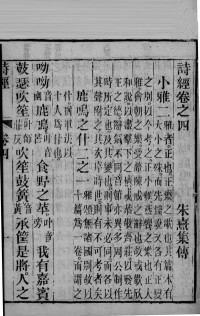 詩經卷之四 朱熹集傳
小雅二 雅者正也正樂之歌也其篇本有
大小之殊而先儒說又各有正變
之別以今考之正小雅燕饗之樂也正大
雅會朝之樂受釐陳戒之辭也故或歡欣
和說以盡羣下之情或恭敬齊莊以發先
王之德辭氣不同音節亦異多周公制作
時所定也及其變也則事未必同而各以
其聲附之其次序時世則有不可考者矣
鹿鳴之什二之一 雅頌無諸國別故以
十篇爲一卷而謂之
什猶軍法以十
人爲什也
呦呦音幽鹿鳴食野之苹我有嘉賓
鼓瑟吹笙吹笙鼓簧音黃承筐是將人之
詩經 卷四